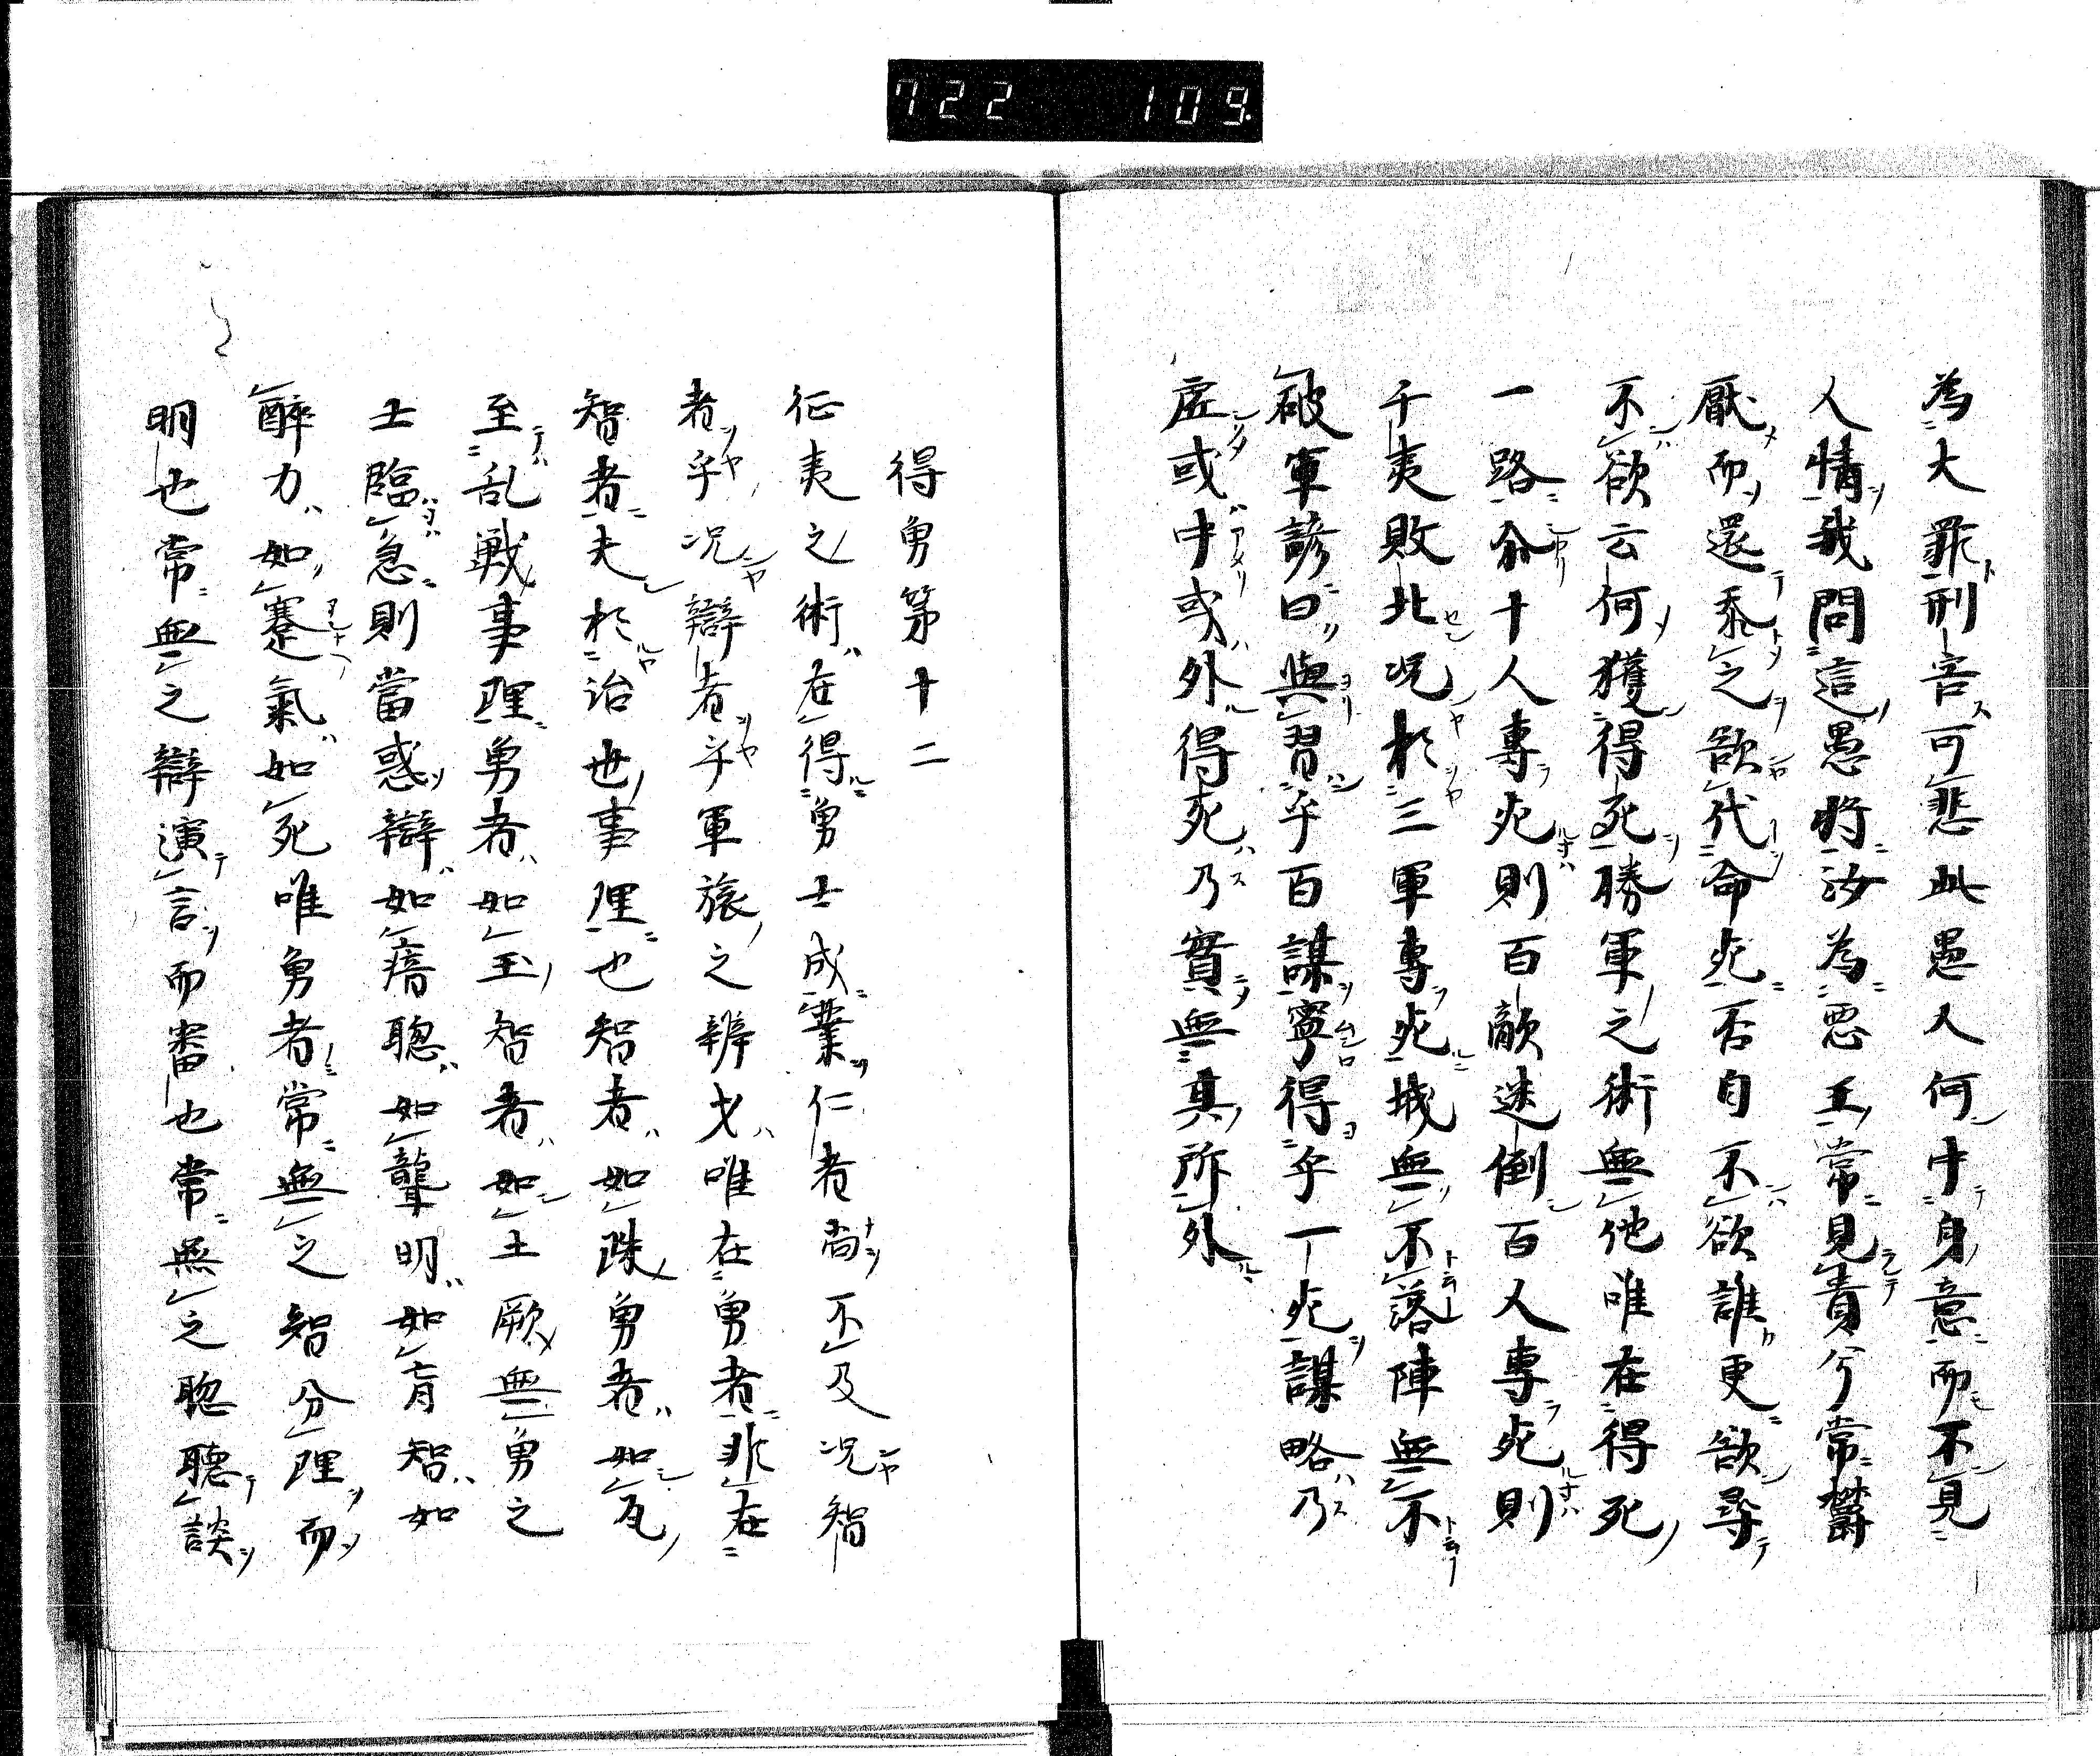 722 109
為大罪刑害可悲此愚人何中身意而不見
人情我問這愚將汝為惡王常見責兮常欝
厭而還忝之欲代命死否自不欲誰更欲尋
不欲云何獲得死勝軍之術無他唯在得死
一路兪十人專死則百敵迷倒百人專死則
千夷敗北況於三軍專死城無不落陣無不
破軍諺曰與習乎百謀寧得乎一死謀略乃
虛或中或外得死乃實無其所外
得勇第十二
征夷之術在得勇士成業仁者尚不及況智
者乎況辯者乎軍旅之辨才唯在勇者非在
智者夫於治世事理也智者如珠勇者如瓦
至乱戦事理勇者如玉智者如土厥無勇之
士臨急則當惑辯如瘖聰如聾明如盲智如
醉力如蹇氣如死唯勇者常無之智分理而
明也常無之辯演言而審也常無之聡聽談